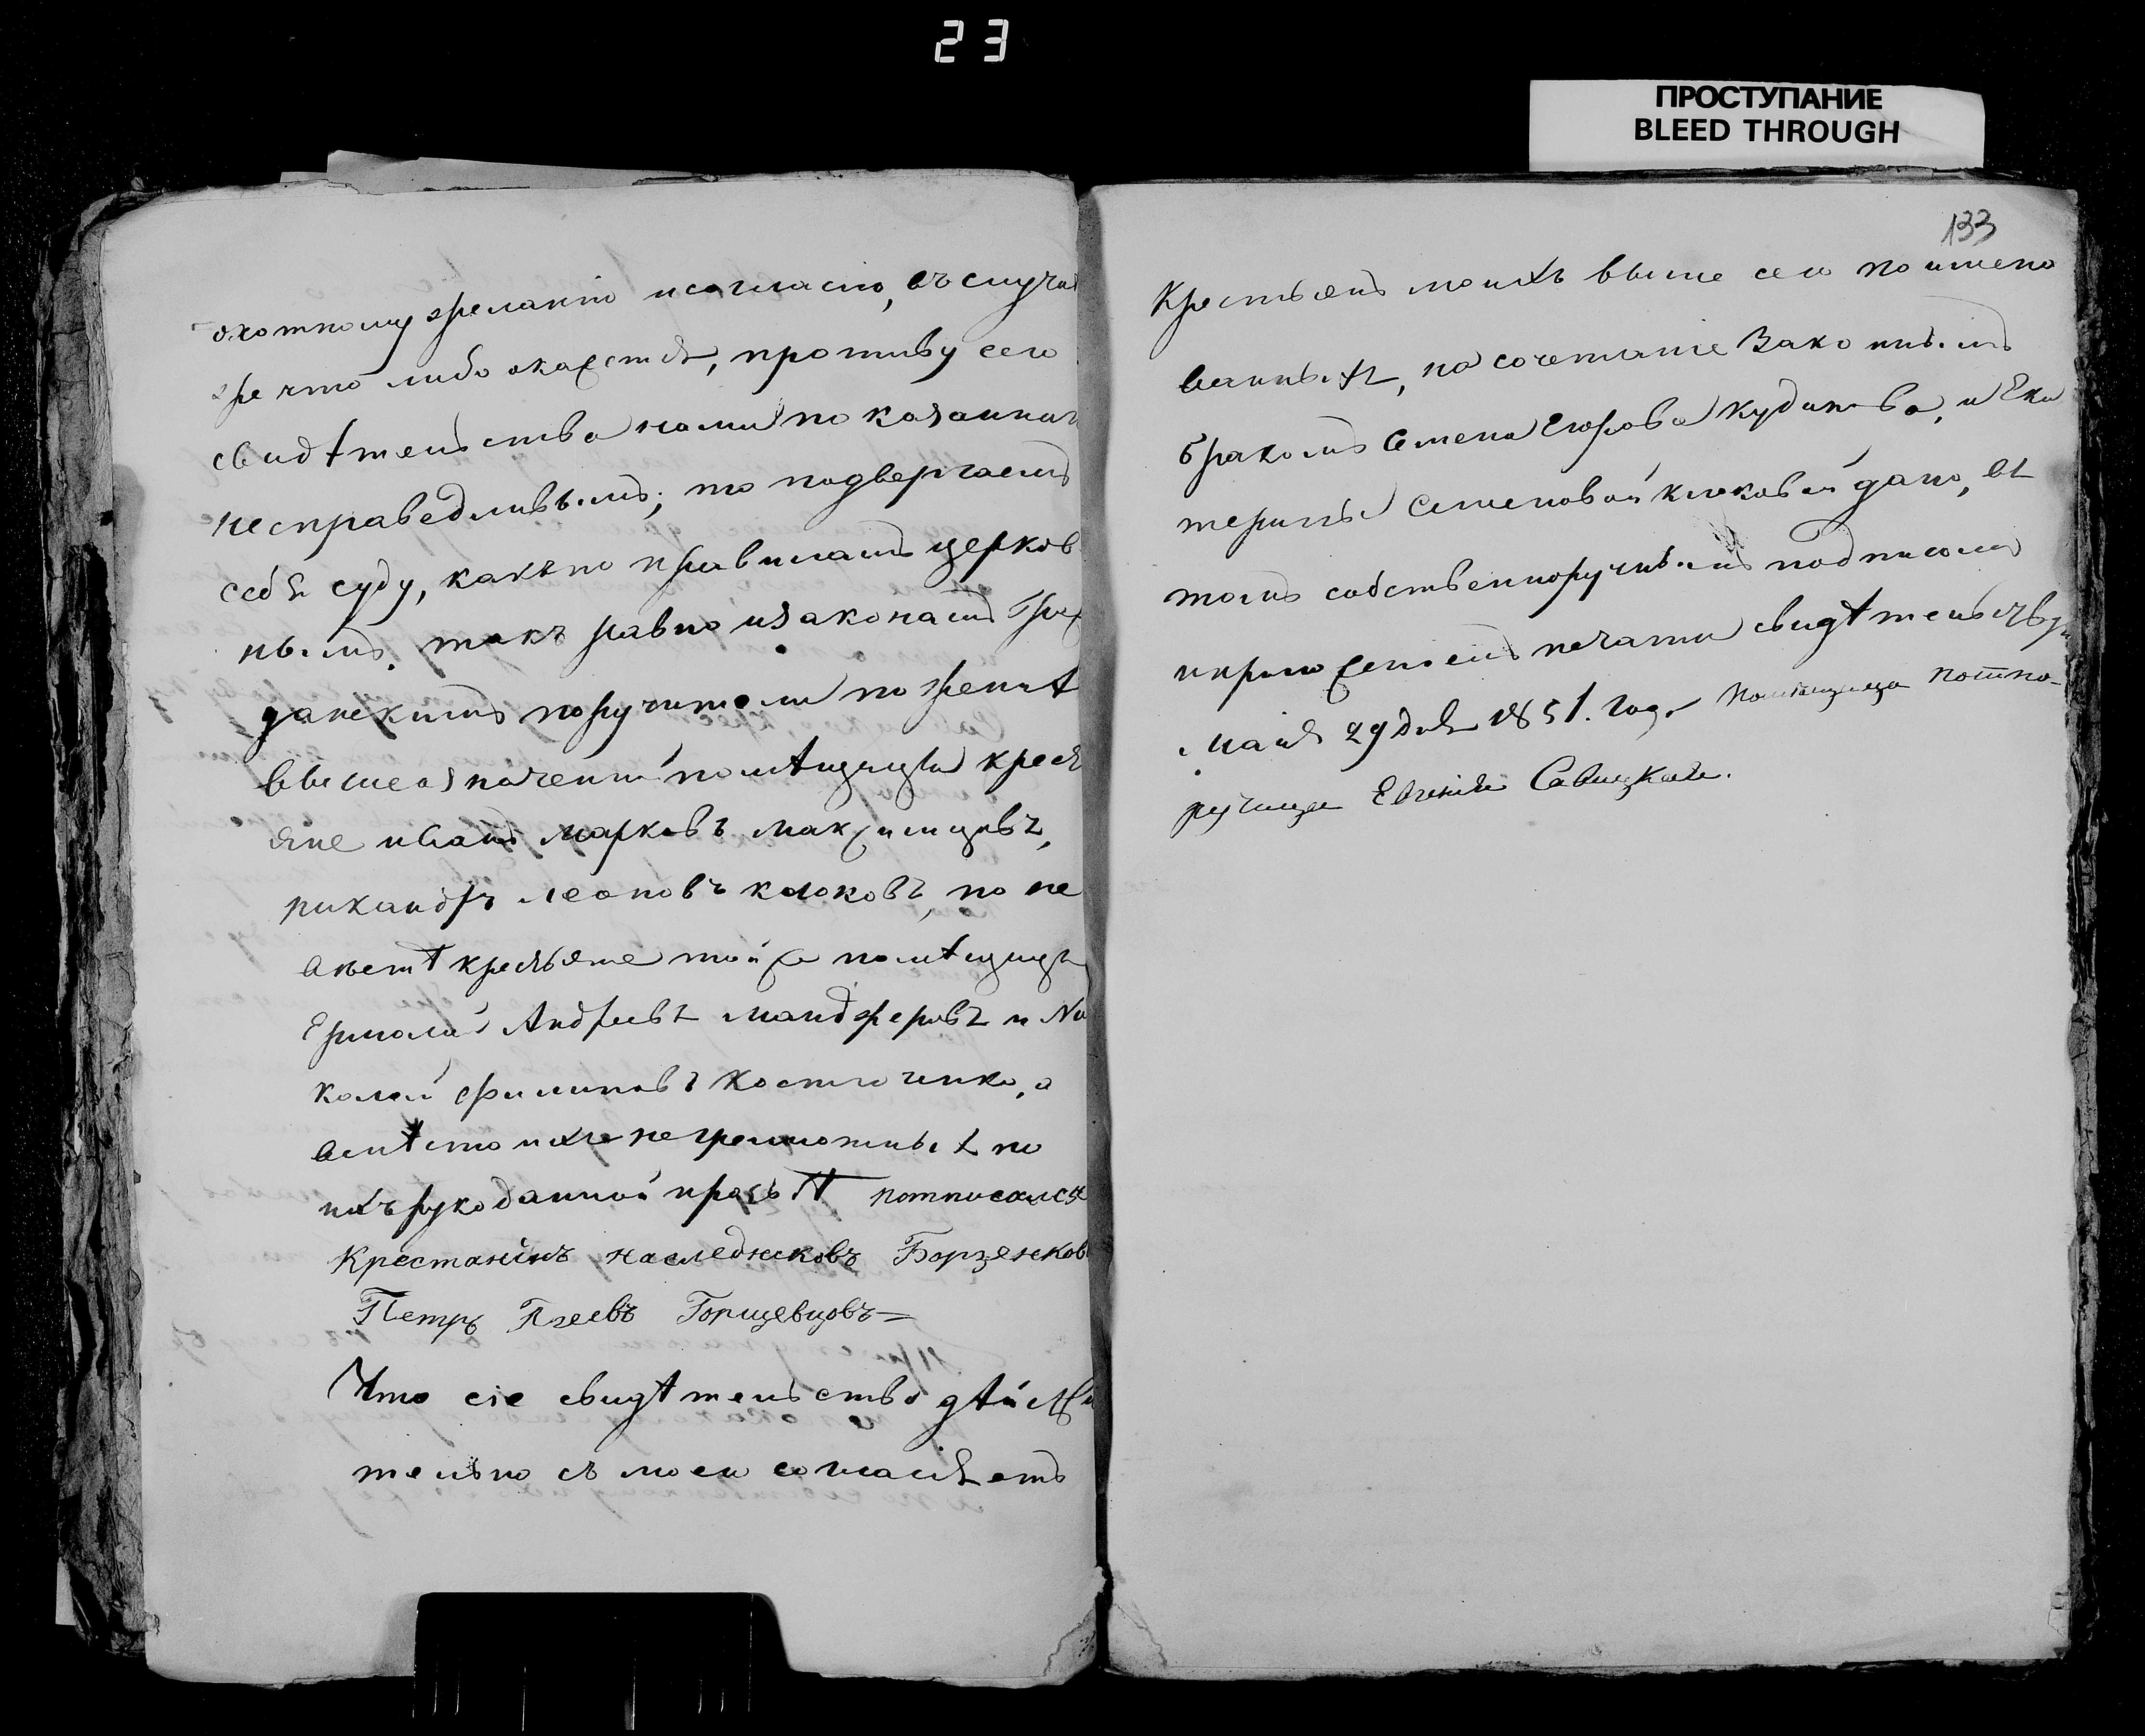 23
ПРОСТУПАНИЕ
BLEED THROUGH
охотному желанію и согласію, въ случаѣ
же что либо окажется, противу сего
свидѣтельства нами показаннаго
несправедливымъ; то подвергаемъ
себя суду, какъ по правиламъ церков
нымъ. такъ равно и законамъ граж
данскимъ поручители по женихѣ
вышеозначенной помѣщицы кресть
яне иванъ марковъ
леоновъ клюковъ, по не
вѣстѣ крестьяне той же помѣщицы
Ермолай Андреевъ и Ни
колай филиповъ а
вмѣсто ихъ неграмотныхъ по
ихъ рукоданной прозьбѣ потписался
Крестанинъ наследниковъ Борзенков
Петръ Горщевцовъ
Что сіе свидѣтельство дѣйстви
тельно съ моего согласія отъ
133
Крестьянъ моихъ выше сего поимено
ванныхъ, на сочетаніе Законнымъ
бракомъ Семена Егорова Кудинова, и Ека
терины Семеновой клюковой дано, въ
томъ собственноручнымъ подписомъ
и приложеніемъ печати свидѣтельствую
маія 29 дня 1851. года Помѣщица потпо-
ручица Евгенія Савицкая.